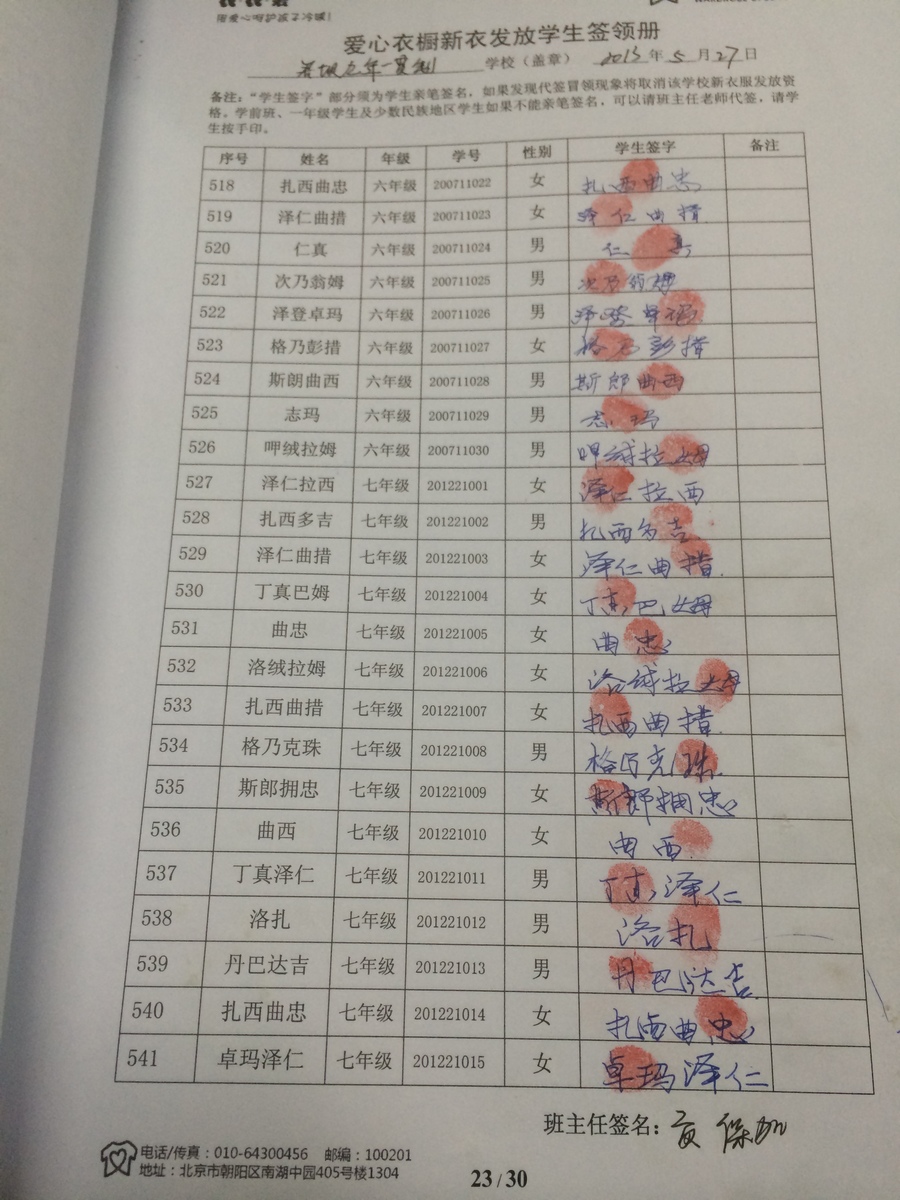 用爱心呵护孩子冷暖!
爱心衣橱新衣发放学生签领册
九年一贯制 学校（盖章） 2013 年 5 月 27 日
备注：“学生签字”部分须为学生亲笔签名，如果发现代签冒领现象将取消该学校新衣服发放资
格。学前班、一年级学生及少数民族地区学生如果不能亲笔签名，可以请班主任老师代签，请学
生按手印。
序号 姓名 年级 学号 性别 学生签字 备注
518 扎西曲忠 六年级 200711022 女 扎西曲忠
519 泽仁曲措 六年级 200711023 女 泽仁曲措
520 仁真 六年级 200711024 男 仁真
521 次乃翁姆 六年级 200711025 男 次乃翁姆
522 泽登卓玛 六年级 200711026 男 泽登卓玛
523 格乃彭措 六年级 200711027 女 格乃彭措
524 斯朗曲西 六年级 200711028 男 斯郎曲西
525 志玛 六年级 200711029 男 志玛
526 呷绒拉姆 六年级 200711030 男 呷绒拉姆
527 泽仁拉西 七年级 201221001 女 泽仁拉西
528 扎西多吉 七年级 201221002 男 扎西多吉
529 泽仁曲措 七年级 201221003 女 泽仁曲措
530 丁真巴姆 七年级 201221004 女 丁真巴姆
531 曲忠 七年级 201221005 女 曲忠
532 洛绒拉姆 七年级 201221006 女 洛绒拉姆
533 扎西曲措 七年级 201221007 女 扎西曲措
534 格乃克珠 七年级 201221008 男 格乃克珠
535 斯郎拥忠 七年级 201221009 女 斯郎拥忠
536 曲西 七年级 201221010 女 曲西
537 丁真泽仁 七年级 201221011 男 丁真泽仁
538 洛扎 七年级 201221012 男 洛扎
539 丹巴达吉 七年级 201221013 男 丹巴达吉
540 扎西曲忠 七年级 201221014 女 扎西曲忠
541 卓玛泽仁 七年级 201221015 女 卓玛泽仁
班主任签名：
电话/传真：010-64300456 邮编：100201
地址：北京市朝阳区南湖中园405号楼1304
23 / 30